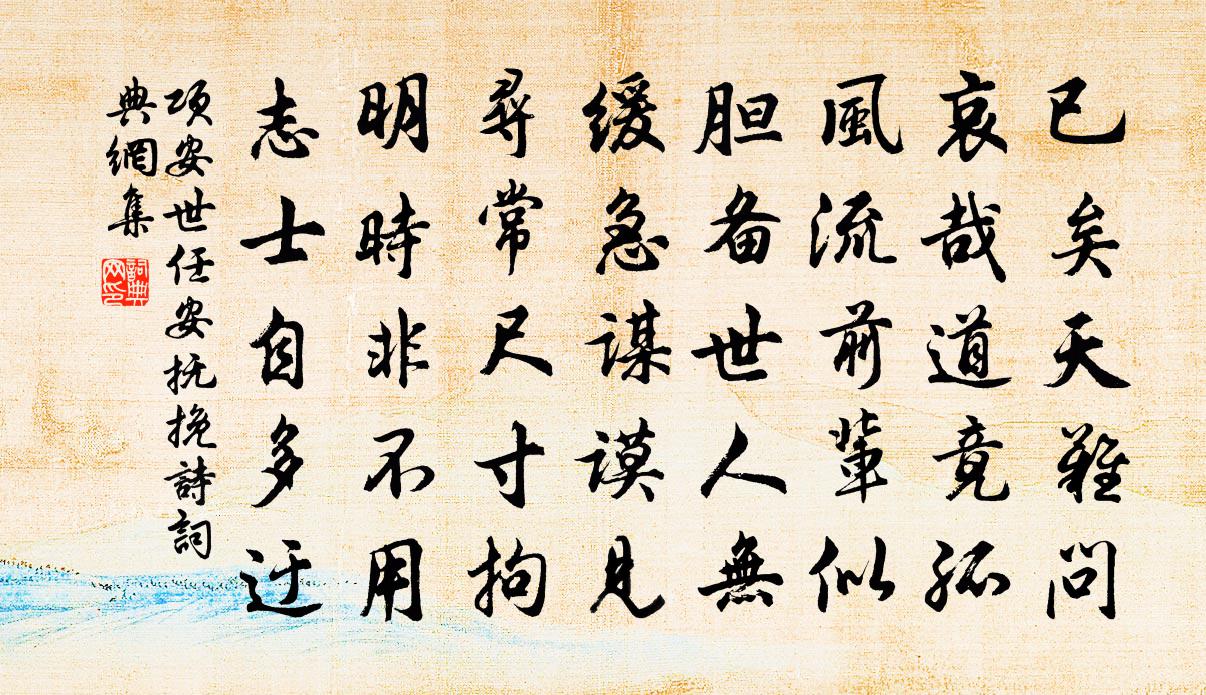 已矣天難問
哀哉道竟孤
風流前輩似
胆备世人無
緩急謀謨見
尋常尺寸拘
明時非不用
志士自多迂
項安世任安抚挽詩詞
典網集
詞典
网印